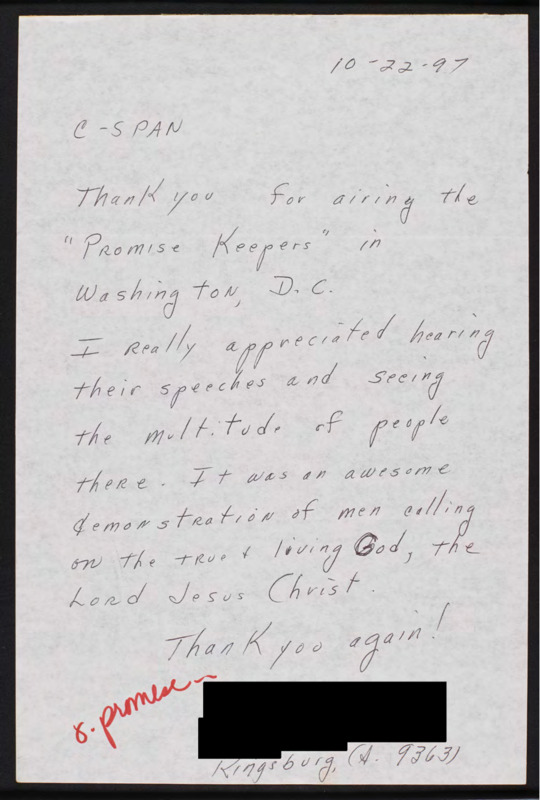 10-22-97
C-SPAN
Thank you for airing the
"Promise Keepers" in
Washington, D.C.
I really appreciated hearing
their speeches and seeing
the multitude of people
there. It was an awesome
demonstration of men calling
on the true & living God, the
Lord Jesus Christ.
Thank you again!
r. promise
Kingsburg, CA. 93631